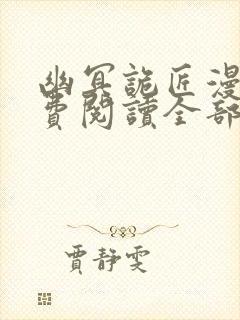 幽冥詭匠漫
費閱讀全部
賈靜雯